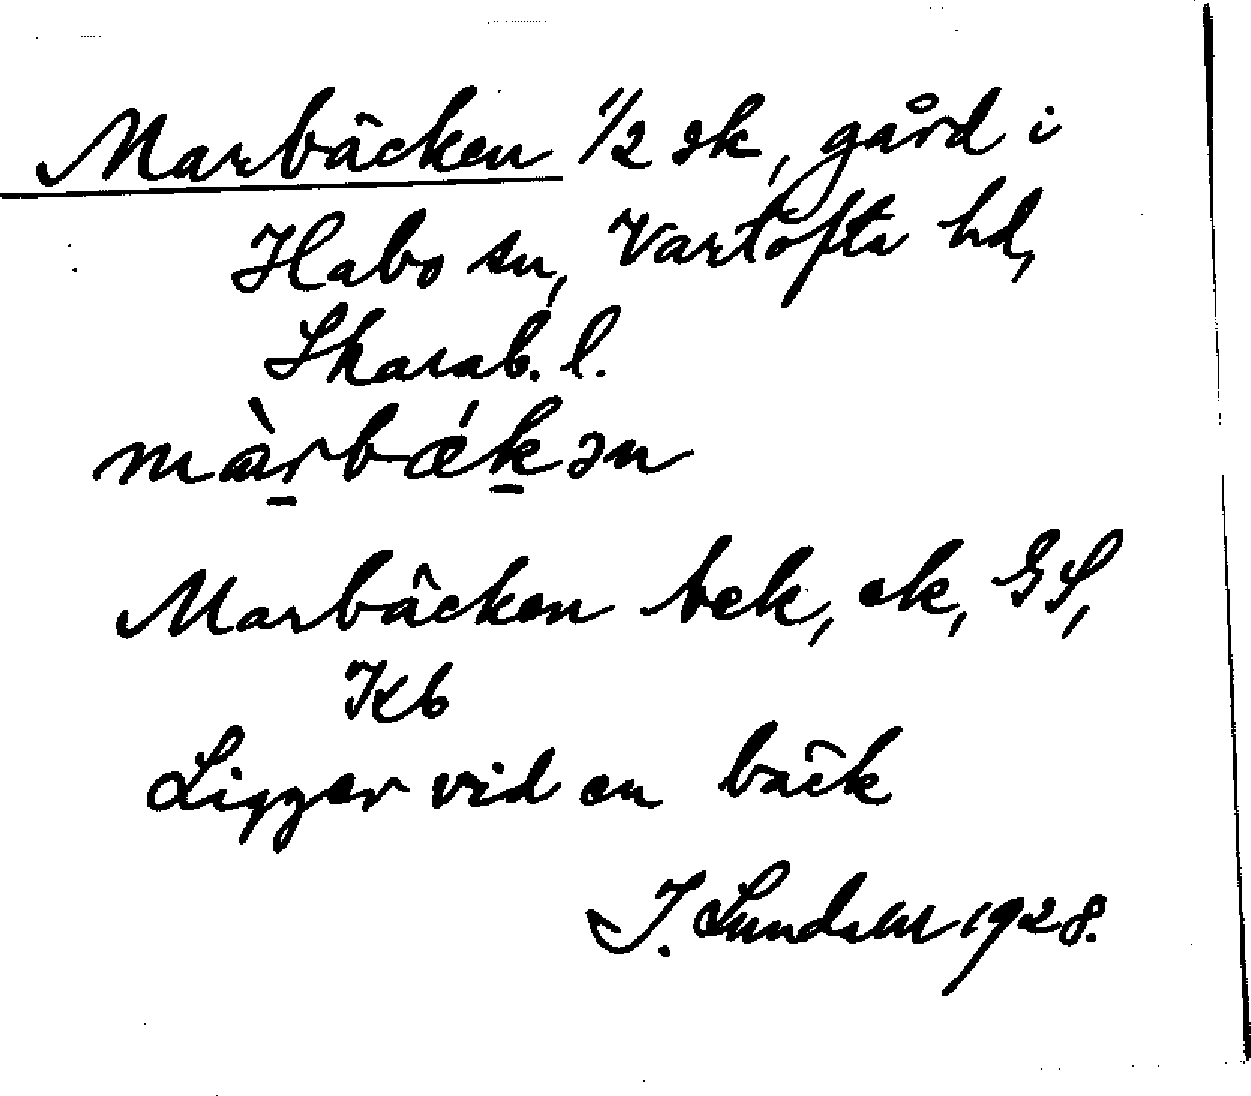 Marbäcken 1/2 sk, gård i
Habo sn, Vartofta hd,
Skarab. l.
màrbǽkən
Marbäcken bek, ek, GS,
Kb
Ligger vid en bäck
I. Lundahl 1928.